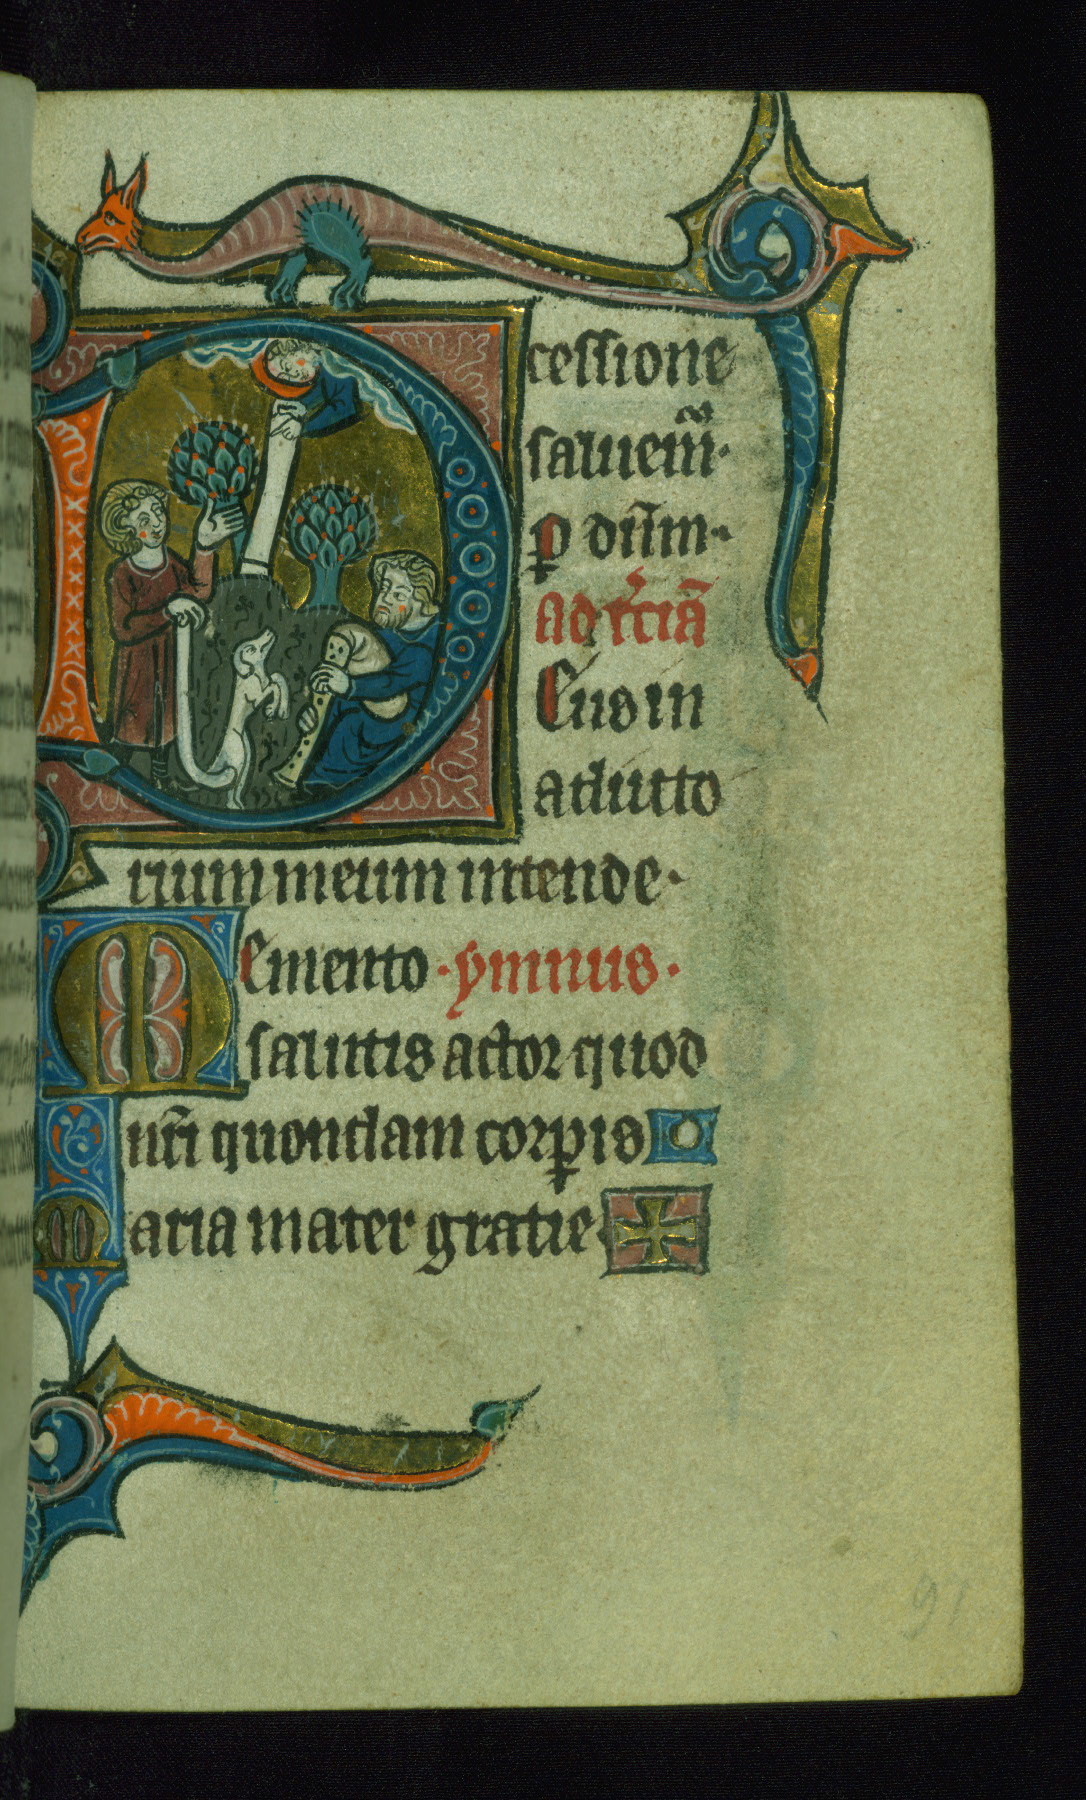 cessione
saluem̄·
ꝑ dn̄m·
ad t̾ciā
Eus in
adiuto
rium meum intende·
Emento · ymnus·
salutis actor quod
nr̄i quondam corꝑis
Maria mater gratie
91